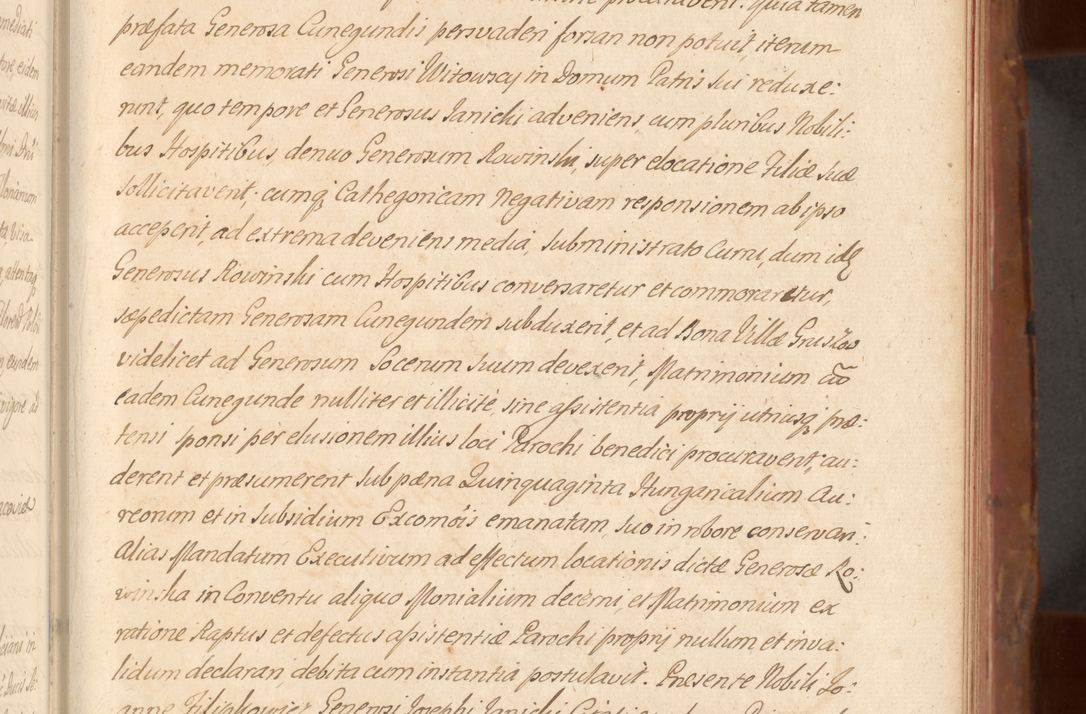 procuraverit. quia tamen
præfata Generosa Cunegundis persvaderi forsan non potuit, iterum
eandem memorati Generosi Witowscy in Domum Patris sui reduxe:
runt, quo tempore et Generosus Janicki adveniens cum pluribus Nobili:
bus Hospitibus, denuo Generosum Rowinski, super elocatione Filiæ suæ
sollicitaverit; cumq Cathegoricam Negativam responsionem ab ipso
acceperit, ad extrema deveniens media, subministrato Curru, dum idē
Generosus Rowinski cum Hospitibus conversaretur et commoraretur,
sæpedictam Generosam Cunegundem subduxerit, et ad Bona Villæ
videlicet ad Generosum Socerum suum devexerit, Matrimonium cū
eadem Cunegunde nulliter et illicitè, sine assistentia proprij utriusq præ:
tensi sponsi per elusionem illius loci Parochi benedici procuraverit, au:
derent et præsumerent sub pæna Quinquaginta Hungaricalium Au:
reorum et in subsidium Excomōis emanatam, suo in robore conservari
Alias Mandatum Executivum ad effectum locationis dictæ Generosæ Ro:
winska in Conventu aliquo Monialium decerni, et Matrimonium ex
ratione Raptus et defectus assistentiæ Parochi proprij nullum et inva:
lidum declarari, debita cum instantia postulavit. Presente Nobili Jo:
anne Filipkowicz Generosi Josephi Janicki